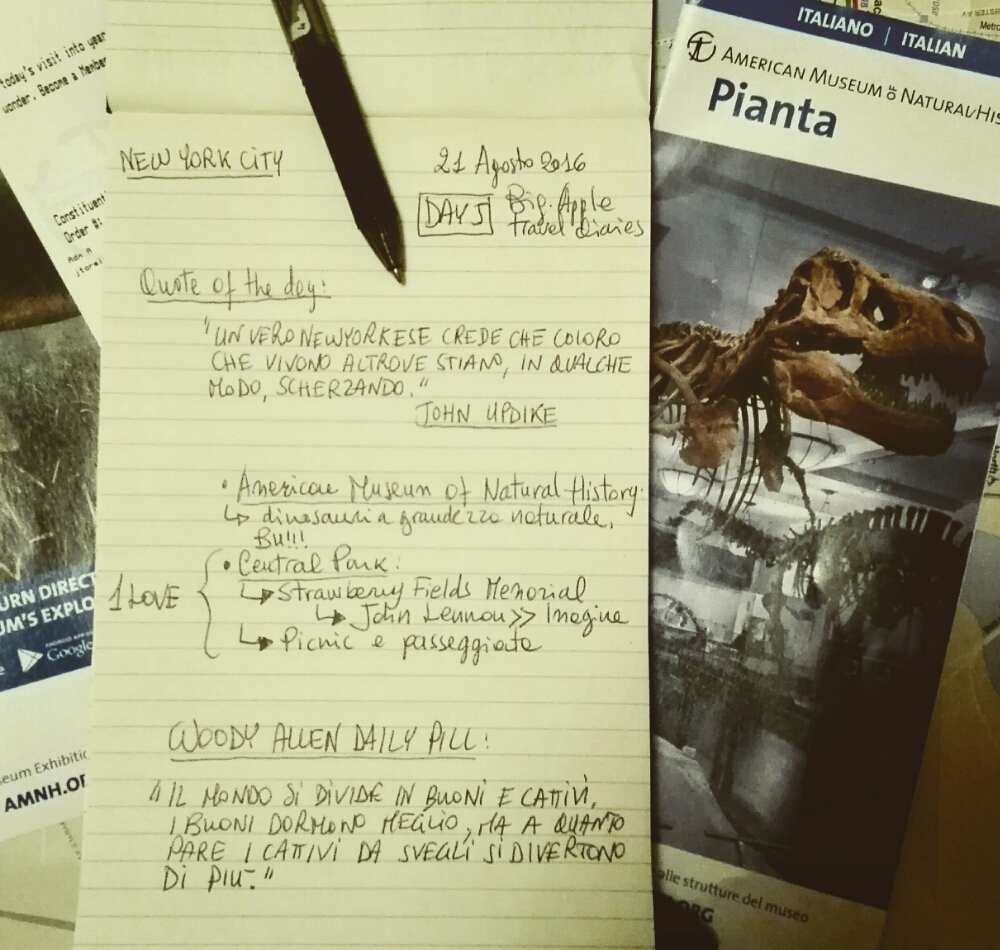 today's visit into year
wonder. Become a Member
Constituent
Order #:
NEW YORK CITY
21 Agosto 2016
DAY 5
Big Apple
Travel diaries
Quote of the day:
"UN VERO NEWYORKESE CREDE CHE COLORO
CHE VIVONO ALTROVE STIANO, IN QUALCHE
MODO, SCHERZANDO."
JOHN UPDIKE
• American Museum of Natural History:
↳ dinosauri a grandezza naturale.
BU!!!
1 LOVE
• Central Park:
↳ Strawberry Fields Memorial
↳ John Lennon >> Imagine
↳ Picnic e passeggiata
WOODY ALLEN DAILY PILL:
"IL MONDO SI DIVIDE IN BUONI E CATTIVI,
I BUONI DORMONO MEGLIO, MA A QUANTO
PARE I CATTIVI DA SVEGLI SI DIVERTONO
DI PIÙ."
URN DIRECT
UM'S EXPLO
ANDROID APP
Google
eum Exhibitio
AMNH.OR
ITALIANO | ITALIAN
AMERICAN MUSEUM OF NATURAL HIS
Pianta
alle strutture del museo
.ORG